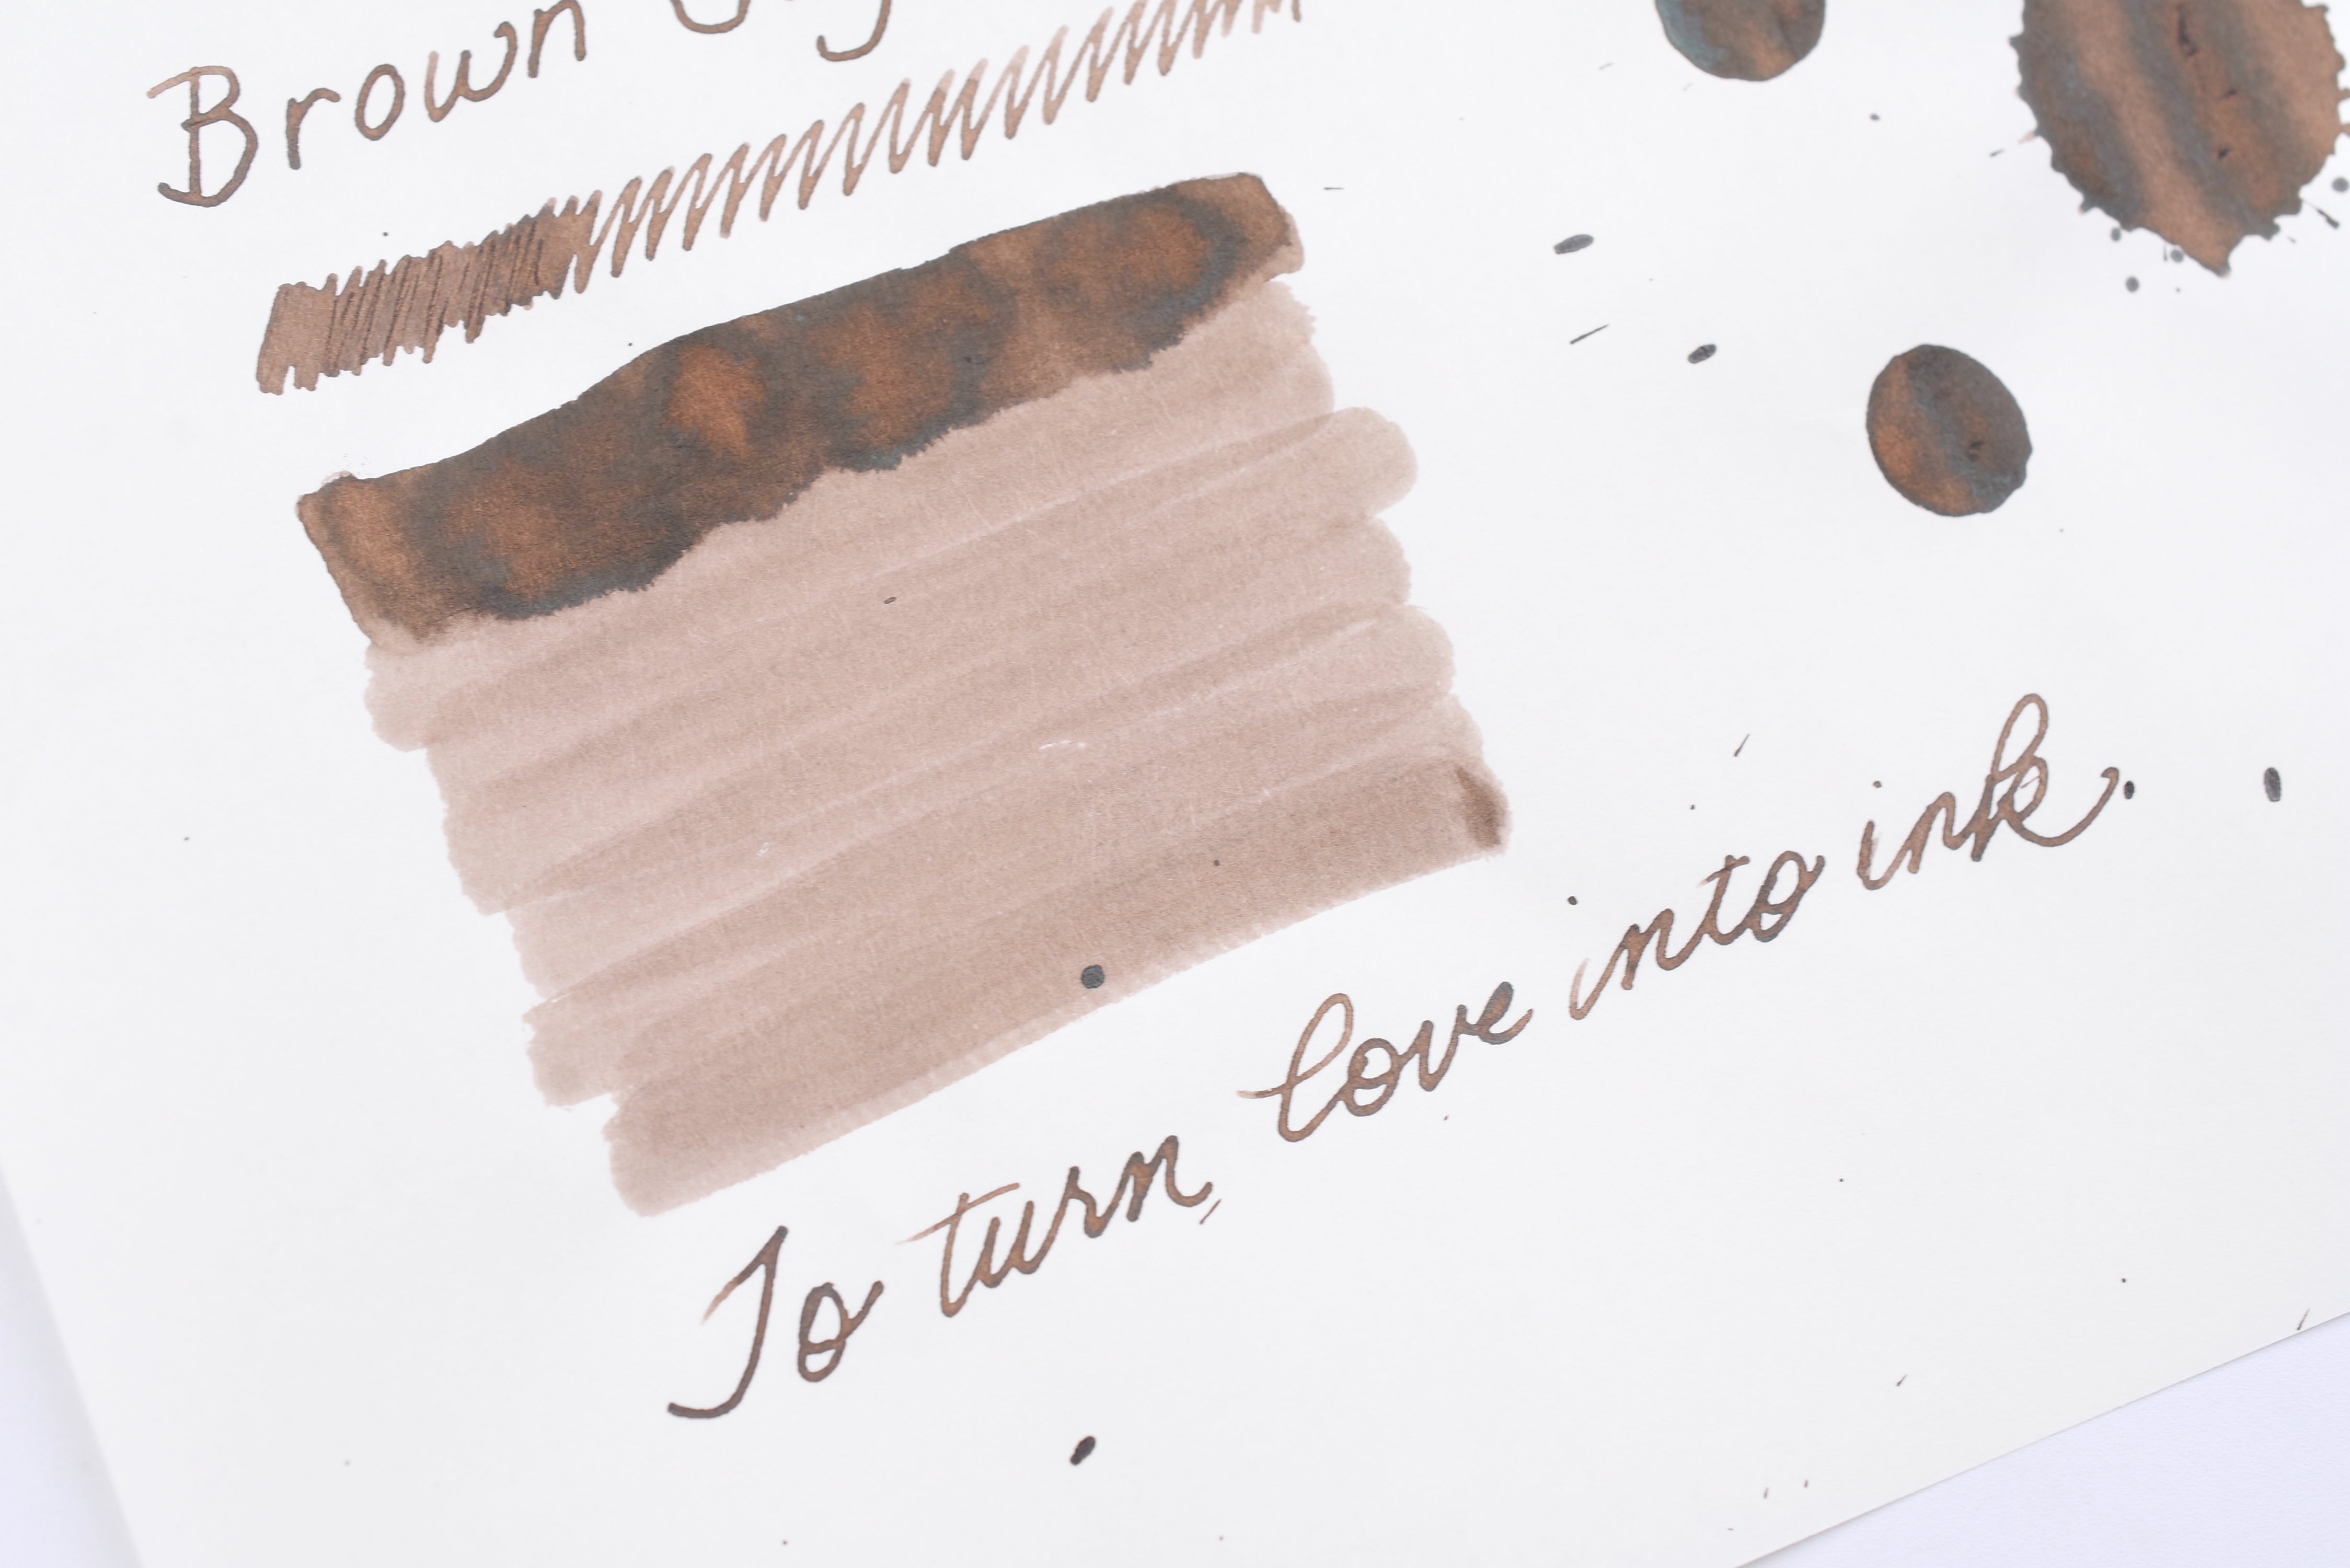 Brown
To turn love into ink.